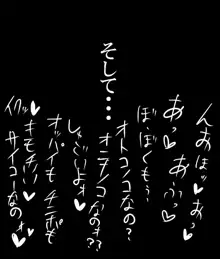 そして…
んあはッ おっ♥
あっ♥ あふっ♥
ぼ、ぼくもぅ
オトコノコなの?
オンナノコなの??
しゅごいよォ♥
オッパイも チ〇ポも
キモチイイ♥
イクッ♥ サイコーなのォ♥